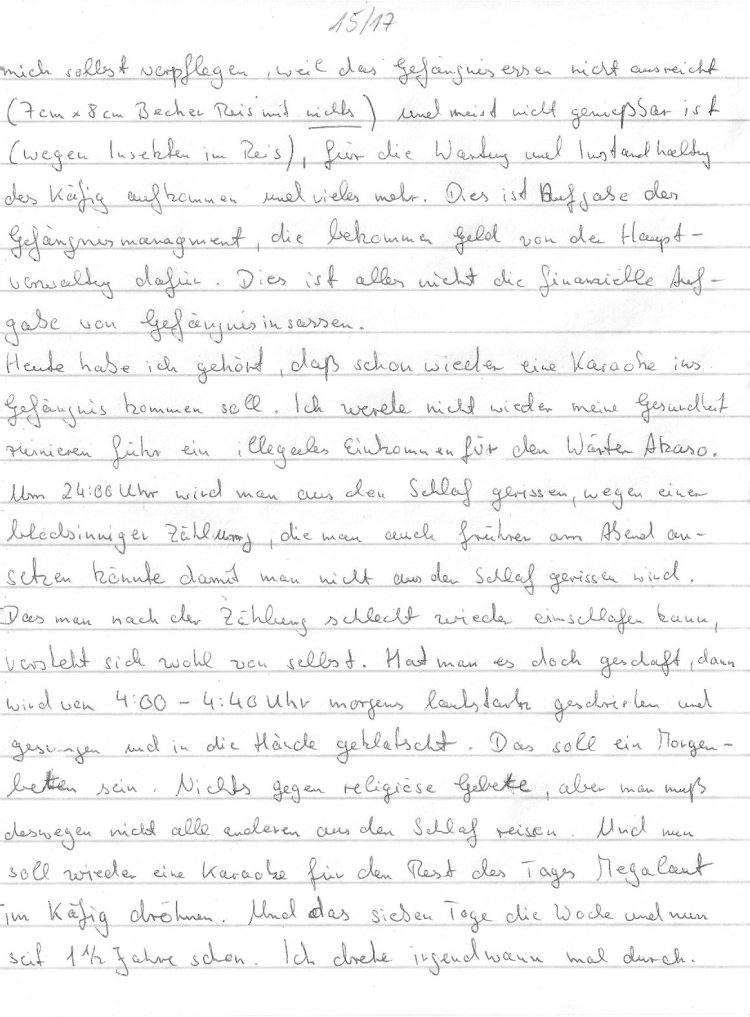 15/17
mich selbst verpflegen, weil das Gefängnisessen nicht ausreicht
(7cm x 8cm Becher Reis mit nichts) und meist nicht genießbar ist
(wegen Insekten im Reis), für die Wartung und Instandhaltung
des Käfig aufkommen und vieles mehr. Dies ist Aufgabe des
Gefängnismanagment, die bekommen Geld von der Haupt-
verwaltung dafür. Dies ist alles nicht die finanzielle Auf-
gabe von Gefängnisinsassen.
Heute habe ich gehört, daß schon wieder eine Karaoke ins
Gefängnis kommen soll. Ich werde nicht wieder meine Gesundheit
ruinieren führ ein illegales Einkommen für den Wärter Akaso.
Um 24:00 Uhr wird man aus den Schlaf gerissen, wegen einer
blödsinniger Zählung, die man auch früher am Abend an-
setzen könnte damit man nicht aus den Schlaf gerissen wird.
Das man nach der Zählung schlecht wieder einschlafen kann,
versteht sich wohl von selbst. Hat man es doch geschaft, dann
wird von 4:00 - 4:40 Uhr morgens lautstark geschrieben und
gesungen und in die Hände geklatscht. Das soll ein Morgen-
beten sein. Nichts gegen religiöse Gebete, aber man muß
deswegen nicht alle anderen aus den Schlaf reisen. Und nun
soll wieder eine Karaoke für den Rest des Tages Megalaut
im Käfig dröhnen. Und das sieben Tage die Woche und nun
seit 1 1/2 Jahre schon. Ich drehe irgendwann mal durch.